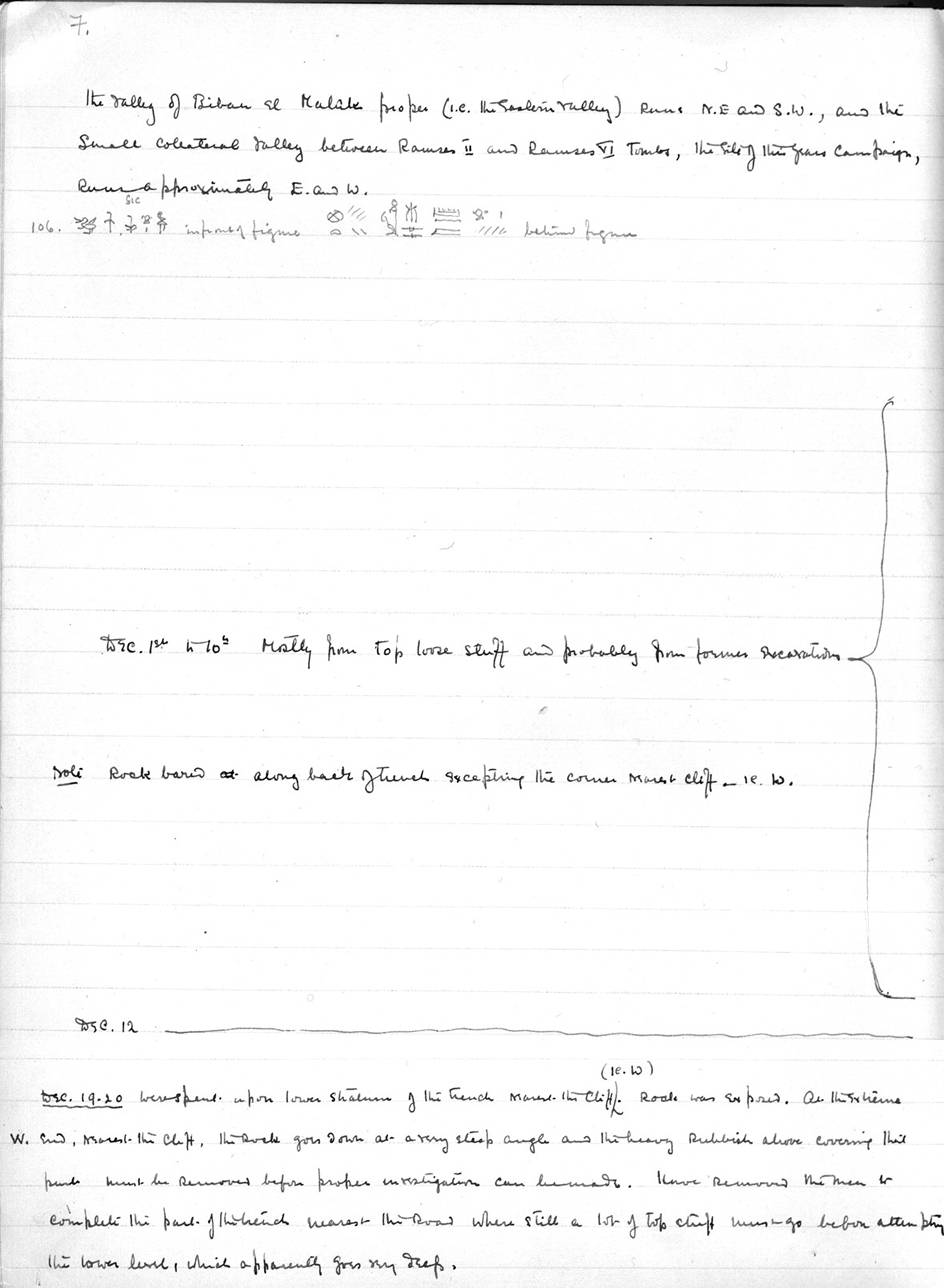 7.
The Valley of Biban el Malûk proper (i.e. the Eastern Valley) runs N.E and S.W., and the
Small collateral Valley between Ramses II and Ramses VI Tombs, the site of this years Campaign,
runs approximately E. and W.
SIC
106. in front of figure behind figure
Dec. 1st to 10th Mostly from top loose stuff and probably from former excavations
Note Rock bared at along back of trench excepting the corner nearest cliff – ie. W.
Dec. 12
(ie. W)
Dec. 19-20 were spent upon lower stratum of the trench nearest the Cliff. Rock was exposed. At the extreme
W. end, nearest the cliff, the Rock goes down at a very steep angle and the heavy Rubbish above covering this
part must be removed before proper investigation can be made. Have removed the men to
complete the part of the trench nearest the Road where still a lot of top stuff must go before attempting
the lower level, which apparently goes very deep.